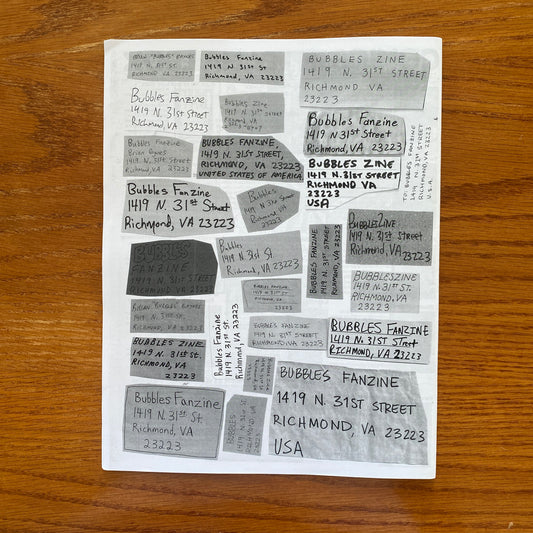 1419 N. 31ST ST.
RICHMOND VA 23223
Bubbles Fanzine
1419 N. 31st St.
Richmond, VA 23223
BUBBLES ZINE
1419 N. 31ST STREET
RICHMOND VA
23223
Bubbles Fanzine
1419 N. 31st Street
Richmond, VA 23223
Bubbles Zine
1419 N. 31st Street
Richmond VA
Bubbles Fanzine
1419 N 31st Street
Richmond, VA 23223
TO: BUBBLES FANZINE
1419 N. 31ST STREET
RICHMOND, VA 23223
U.S.A.
Bubbles Fanzine
1419 N. 31st St
Richmond, VA 23223
BUBBLES FANZINE,
1419 N. 31ST STREET,
RICHMOND, VA 23223
UNITED STATES OF AMERICA
BUBBLES ZINE
1419 N. 31ST STREET
RICHMOND VA
23223
USA
Bubbles Fanzine
1419 N. 31st Street
Richmond, VA 23223
Bubbles
1419 N. 31st St
Richmond, VA
23223
BUBBLES FANZINE
1419 N. 31ST STREET
RICHMOND, VA 23223
Bubbles Zine
1419 N. 31st Street
Richmond, VA 23223
BUBBLES
FANZINE
1419 N. 31ST STREET
RICHMOND, VA 23223
Bubbles
1419 N 31st St
Richmond, VA 23223
BUBBLES ZINE
1419 N. 31ST STREET
RICHMOND, VA 23223
BUBBLES FANZINE
1419 N. 31ST ST.
RICHMOND, VA
23223
1419 N. 31ST ST.
RICHMOND, VA 23223
Bubbles Fanzine
1419 N. 31ST ST.
Richmond, VA 23223
BUBBLES FANZINE
1419 N. 31ST STREET
RICHMOND, VA 23223
BUBBLES FANZINE
1419 N. 31ST Street
RICHMOND, VA 23223
BUBBLES ZINE
1419 N. 31ST ST.
RICHMOND, VA
23223
Bubbles Fanzine
1419 N. 31st St.
Richmond, VA
23223
BUBBLES
1419 N 31st St
RICHMOND VA
23223
BUBBLES FANZINE
1419 N. 31ST STREET
RICHMOND, VA 23223
USA